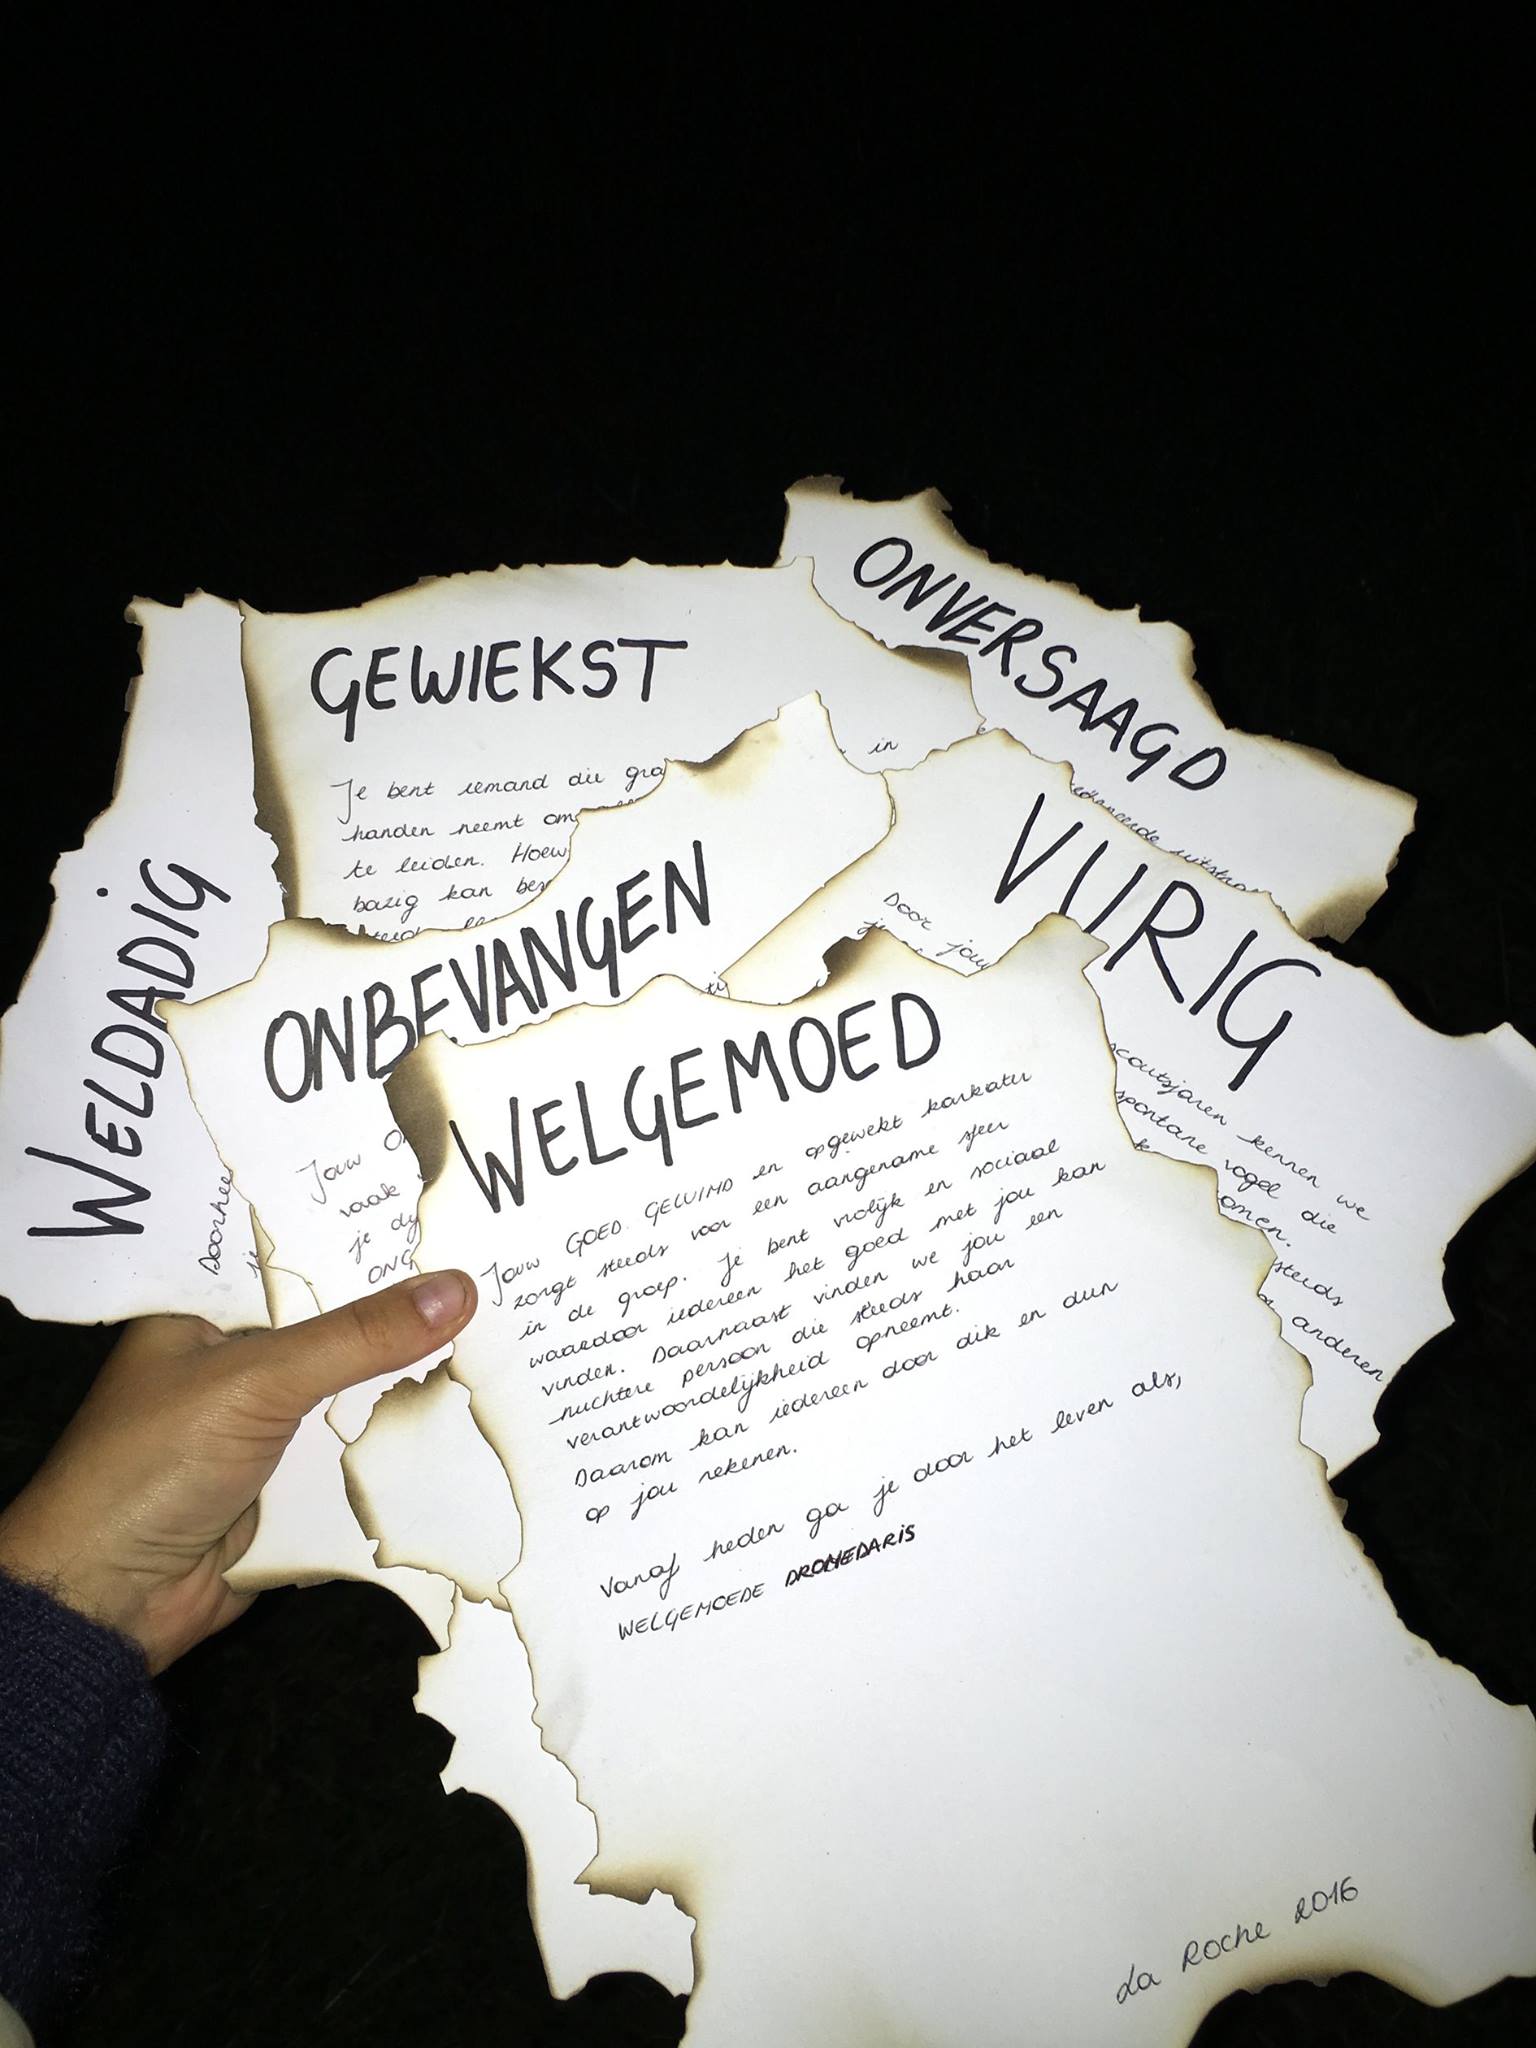 ONVERSAAGD
GEWIEKST
Je bent iemand die gra
in
handen neemt om
te leiden. Hoew
bazig kan bes
VURIG
Door jouw
scoutsjaren kennen we
spontane vogel die
omen.
steeds
anderen
WELDADIG
Doorhee
je
ONBEVANGEN
Jouw O
vaak
je dy
ONG
WELGEMOED
Jouw GOED GELUIMD en opgewekt karkater
zorgt steeds voor een aangename sfeer
in de groep. Je bent vrolijk en sociaal
waardoor iedereen het goed met jou kan
vinden. Daarnaast vinden we jou een
nuchtere persoon die steeds haar
verantwoordelijkheid opneemt.
Daarom kan iedereen door dik en dun
op jou rekenen.
Vanaf heden ga je door het leven als,
WELGEMOEDE DROMEDARIS
La Roche 2016